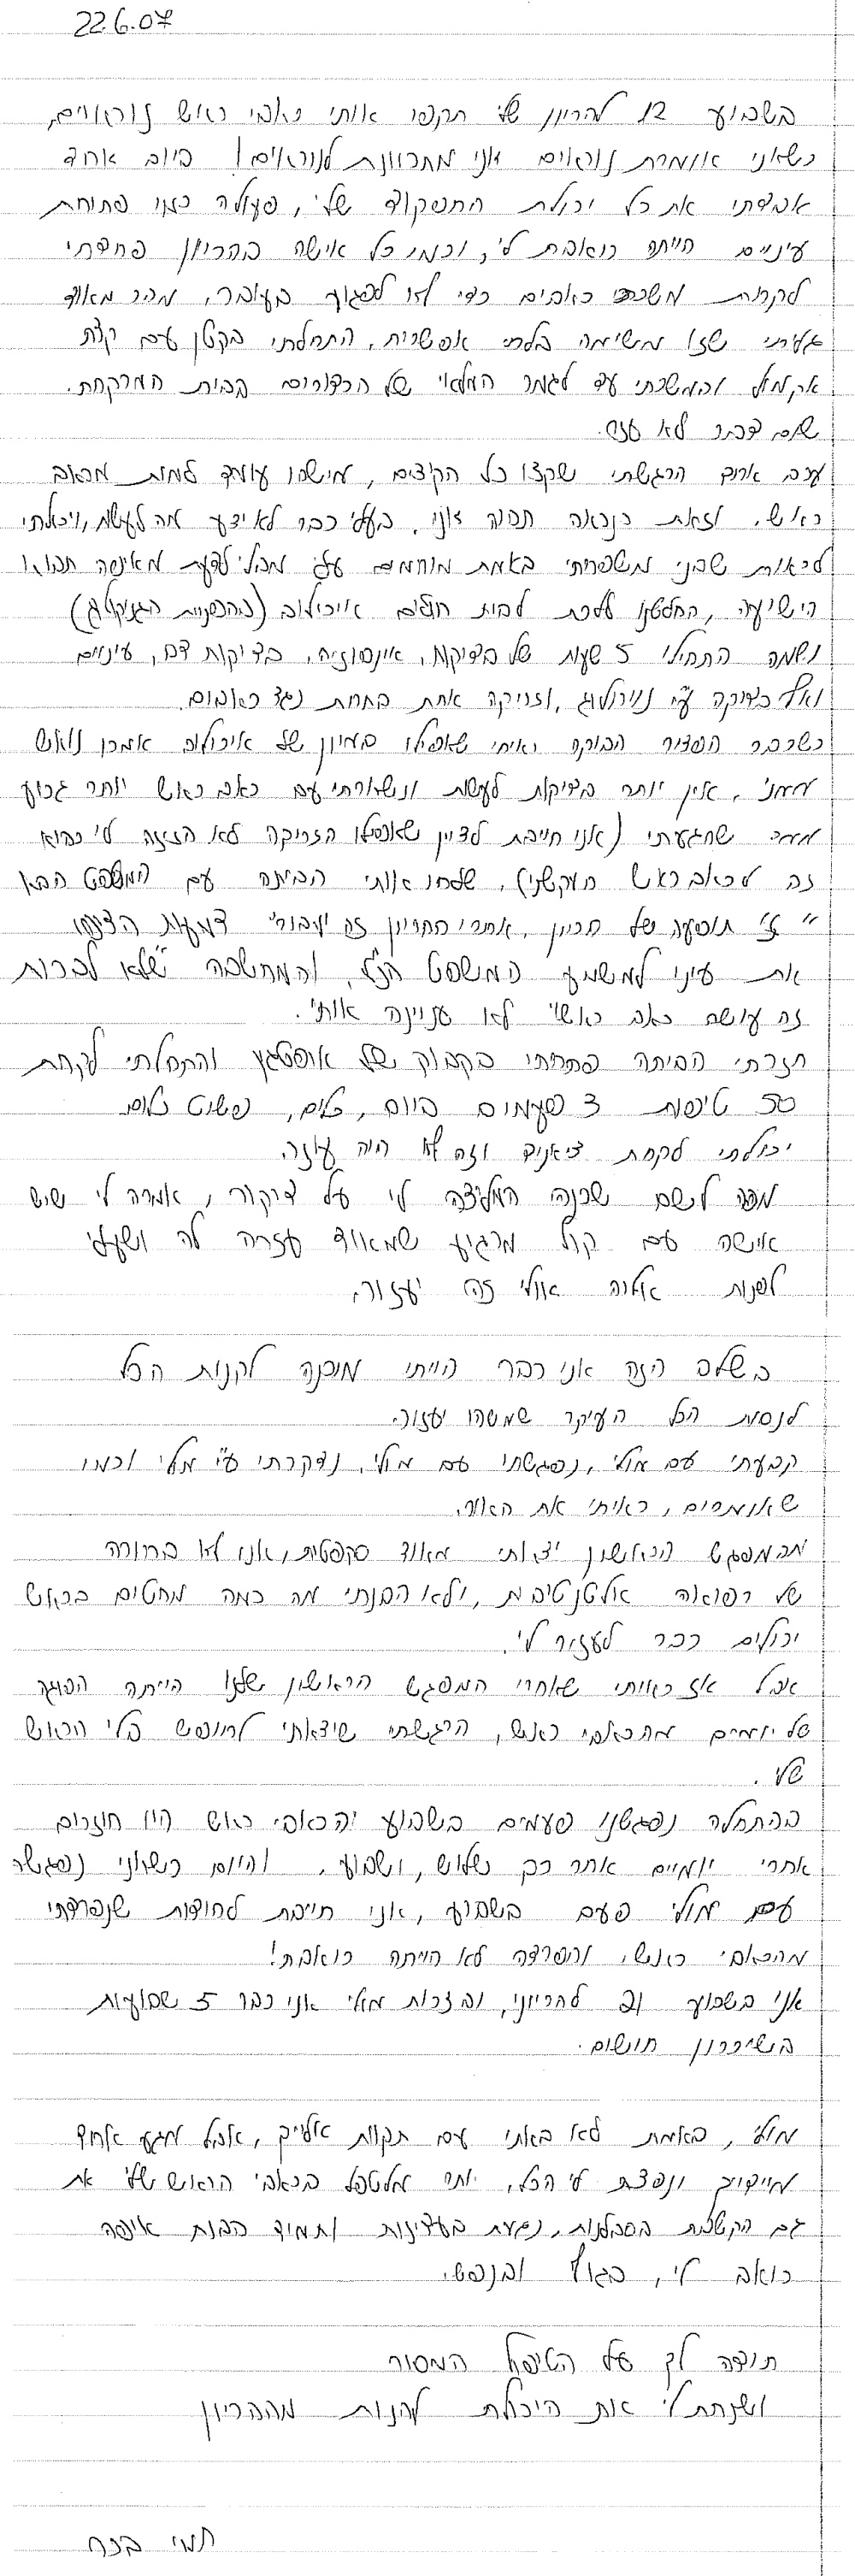 22.6.07
בשבוע 12 להריון שלי תקפו אותי כאבי ראש נוראיים,
כשאני אומרת נוראים אני מתכוונת לנוראים! ביום אחד
אבדתי את כל יכולת התפקוד שלי, פעולה כמו פתיחת
עיניים הייתה כואבת לי, וכמו כל אישה בהריון פחדתי
לקחת משככי כאבים כדי לא לפגוע בעובר, מהר מאוד
גיליתי שזו משימה בלתי אפשרית, התחלתי בקטן עם קצת
אקמול והמשכתי עד לגמר המלאי של הכדורים בבית המרקחת.
שום דבר לא עזר.
ערב אחד הרגשתי שקצו כל הקיצים, מישהו עומד למות מכאב
ראש, וזאת כנראה תהיה אני, בעלי כבר לא ידע מה לעשות, ויכולתי
לראות שבני משפחתי באמת מרחמים עלי מבלי לדעת מאיפה תבוא
הישועה, החלטנו ללכת לבית חולים איכילוב (בהפניית הגניקולוג)
ושמה התחילו 5 שעות של בדיקות, אינפוזיה, בדיקות דם, עיניים
ואף בדיקה ע"י נוירולוג, וזריקה אחת בתחת נגד כאבים.
כשכבר הפציע הבוקר ראיתי שאפילו במיון של איכילוב אמרו נואש
ממני, אין יותר בדיקות לעשות ונשארתי עם כאב ראש יותר גרוע
ממה שהגעתי (אני חייבת לציין שאפילו הזריקה לא הזיזה לי כהוא
זה לכאב ראש העקשני), שלחו אותי הביתה עם המשפט הבא
"זו תופעה של הריון, אחרי ההריון זה יעבור" דמעות הציפו
את עיני למשמע המשפט הנ"ל, והמחשבה "שלא לבכות
זה עושה כאב ראש" לא עניינה אותי.
חזרתי הביתה פתחתי בקבוק של אופטלגין והתחלתי לקחת
50 טיפות 3 פעמים ביום, כלום, פשוט כלום
יכולתי לקחת ציאניד וזה לא היה עוזר.
מפה לשם שכנה המליצה לי על דיקור, אמרה לי שיש
אישה עם קול מרגיע שמאוד עזרה לה ושעלי
לפנות אליה אולי זה יעזור.
בשלב הזה אני כבר הייתי מוכנה לקנות הכל
לנסות הכל העיקר שמשהו יעזור.
קבעתי עם מולי, נפגשתי עם מולי, נדקרתי ע"י מולי וכמו
שאומרים, ראיתי את האור.
מהמפגש הראשון יצאתי מאוד סקפטית, אני לא בחורה
של רפואה אלטנטיבית, ולא הבנתי מה כמה מחטים בראש
יכולים כבר לעזור לי.
אבל אז ראיתי שאחרי המפגש הראשון שלנו הייתה הפוגה
של יומיים מהכאבי ראש, הרגשתי שיצאתי לחופש בלי הראש
שלי.
בהתחלה נפגשנו פעמים בשבוע והכאבי ראש היו חוזרים
אחרי יומיים אחר כך שלוש, ושבוע. והיום כשאני נפגשת
עם מולי פעם בשבוע, אני חייבת להודות שנפרדתי
מהכאבי ראש, והפרדה לא הייתה כואבת!
אני בשבוע 19 להריוני, ובזכות מולי אני כבר 5 שבועות
בשיכרון חושים.
מולי, באמת לא באתי עם תקוות אליך, אבל מגע אחד
מיידיך ונפצת לי הכל, יותר מלטפל בכאבי הראש שלי את
גם הקשבת בסבלנות, נגעת בעדינות ותמיד הבנת איפה
כואב לי, בגוף ובנפש.
תודה לך על הטיפול המסור
ושנתת לי את היכולת להנות מההריון
תמי בכר